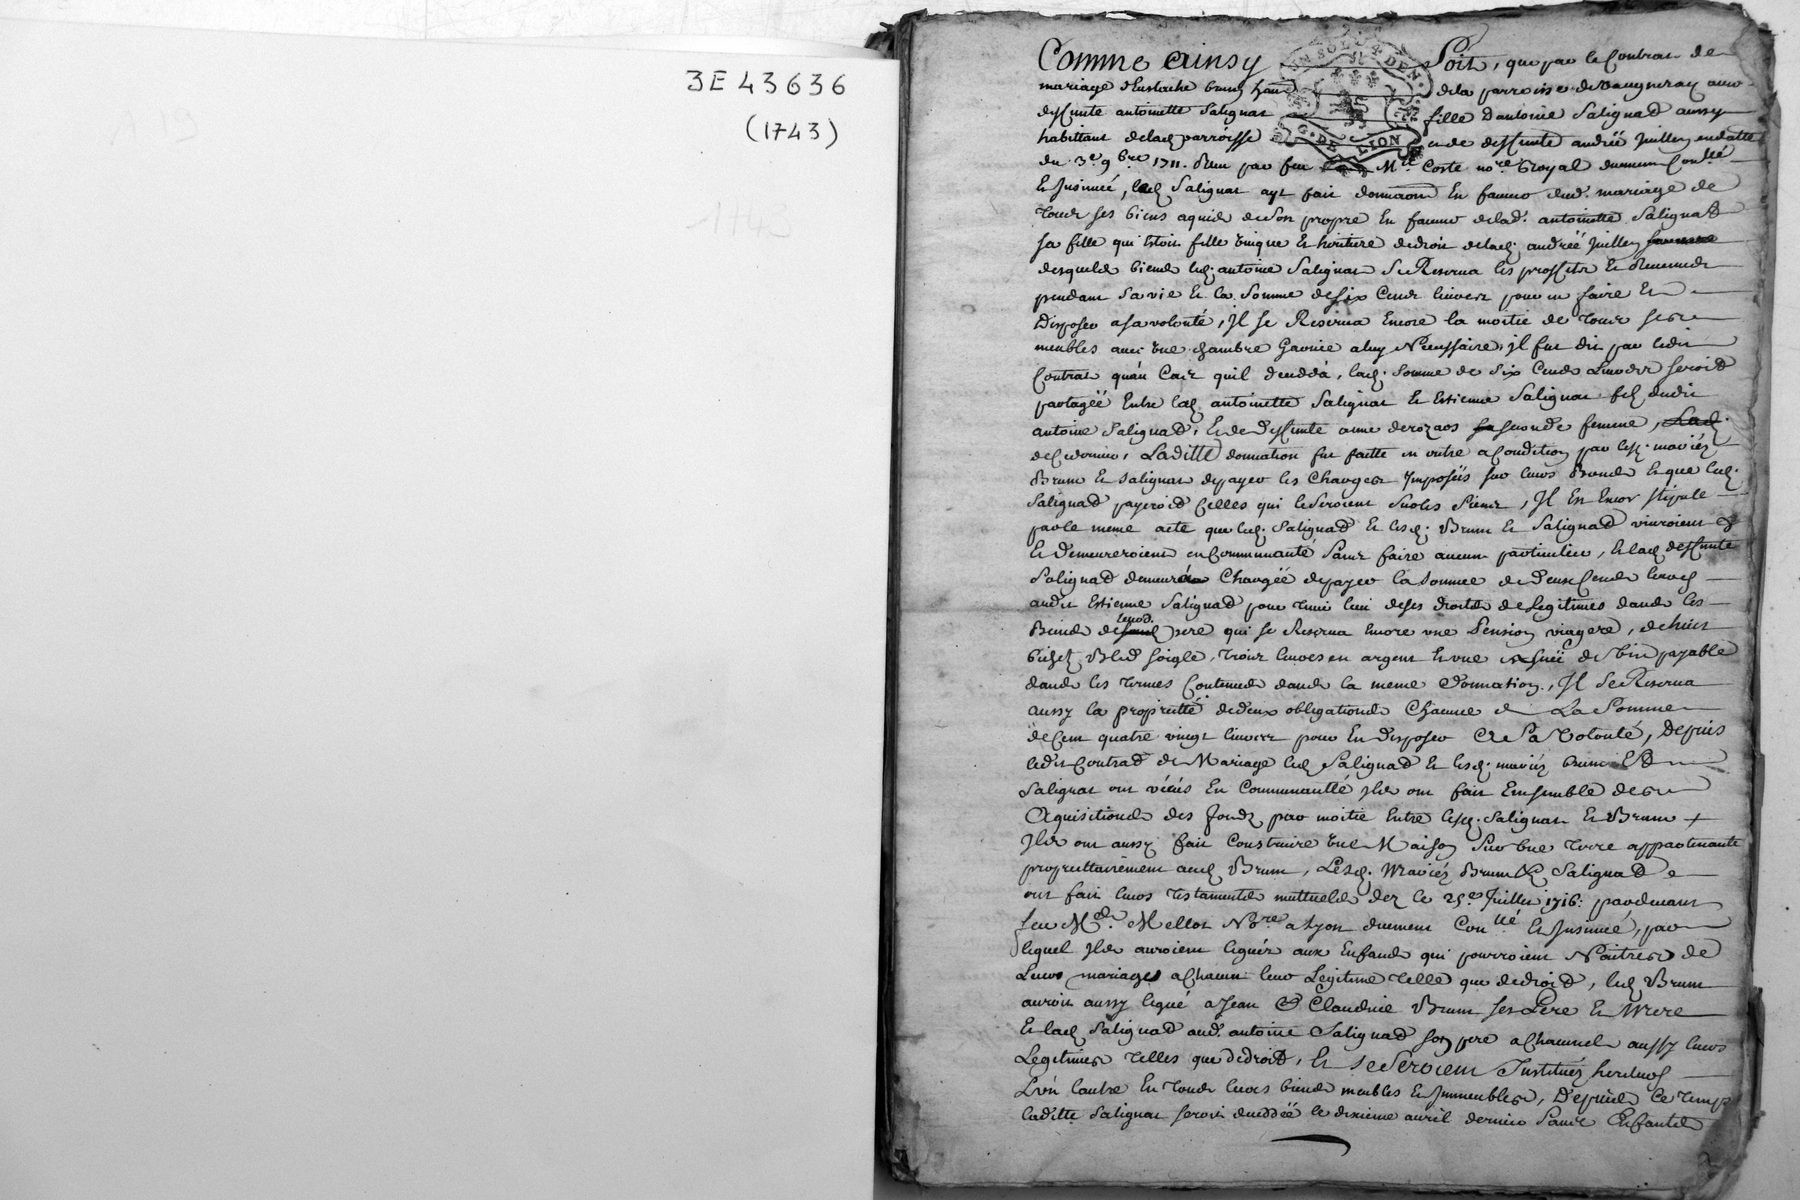 3E 43636
(1743)
Comme ainsy Soit, que par le Contrat de
mariage d'Eustache brun de la parroisse de Vaugneray avec
deffunte antoinette Salignat fille d'antoine Salignad aussy
habittant de lad. parroisse et de deffunte andrée Juillen en datte
du 3e. 9bre 1711. Receu par feu Me. Coste nore. Royal duement Conllé
Et Insinué, led. Salignat ayt fait donnaon En faveur dud. mariage de
tous ses biens aquis de son propre En faveur de lad. antoinette Salignad
sa fille qui Estoit fille unique Et heritiere de droit de lad. andréé Juillen
desquels biens led. antoine Salignat se Reserva les proffits Et Revenus
pendant sa vie Et la Somme de six Cents livres pour en faire Et
Disposer a sa volonté, Il se Reserva Encore la moitié de tous ses
meubles avec une chambre Garnie a luy Necessaire, il fut dit par ledit
Contrat qu'au Cas qu'il decedda, lad. somme de six Cents Livres seroit
partagéé Entre lad. antoinette Salignat Et Estienne Salignat fils dudit
antoine Salignad, Et de deffunte anne derozaos seconde femme,
Laditte donnation fut faitte en outre a Condition par lesd. mariés
Brun Et Salignat de payer les Charges Imposéés sur leurs Biends Et que led.
Salignad payeroit Celles qui le seroient sur les siens, Il Est Encor stipulé
par le meme acte que led. Salignad Et lesd. Brun Et Salignad vivroient
Et Demeureroient en Communauté sans faire aucun particulier, Et lad. deffunte
Salignad demeura Chargéé de payer la somme de deux Cents livres
audit Estienne Salignad pour tenir lieu de ses droits de legitimes dans les
Biends de leurd. pere qui se Reserva Encore une Pension viagere, de huit
bichets Bled soigle, trois livres en argent Et une asnéé de vin payable
dans les termes Contenus dans la meme Donnation, Il se Reserva
aussy la proprietté de deux obligations Chacune de La Somme
de Cent quatre vingt livres pour En Disposer a Sa Volonté, Depuis
ledit Contrad de Mariage led. Salignad Et lesd. mariés brun Et
Salignat ont vécus En Communautté Ils ont fait Ensemble des
Aquisitions des fonds par moitié Entre lesd. Salignat Et Brun
Ils ont aussy fait Construire une Maison Sur une terre appartenante
propriettairement aud. Brun, Lesd. Mariés Brun & Salignad
ont fait leurs testaments muttuels dez le 25e. Juillet 1716. pardevant
feu Me. Mellot Nore. a Lyon duement Conllé Et Insinué, par
lequel Ils auroient legués aux Enfands qui pourroient Naitres de
Leurs mariages a Chacun leur Legitime telle que de droit, led. Brun
auroit aussy legué a Jean & Claudine Brun ses Pere Et Mere
Et lad. Salignad aud. antoine Salignad son pere a Chacuns aussy leurs
Legitimes telles que de droit, Et se seroient Institués heritiers
L'un L'autre En tous leurs biends meubles Et Immeubles, Depuis Ce temps
laditte Salignat seroit deceddéé le dixieme avril dernier sans Enfants